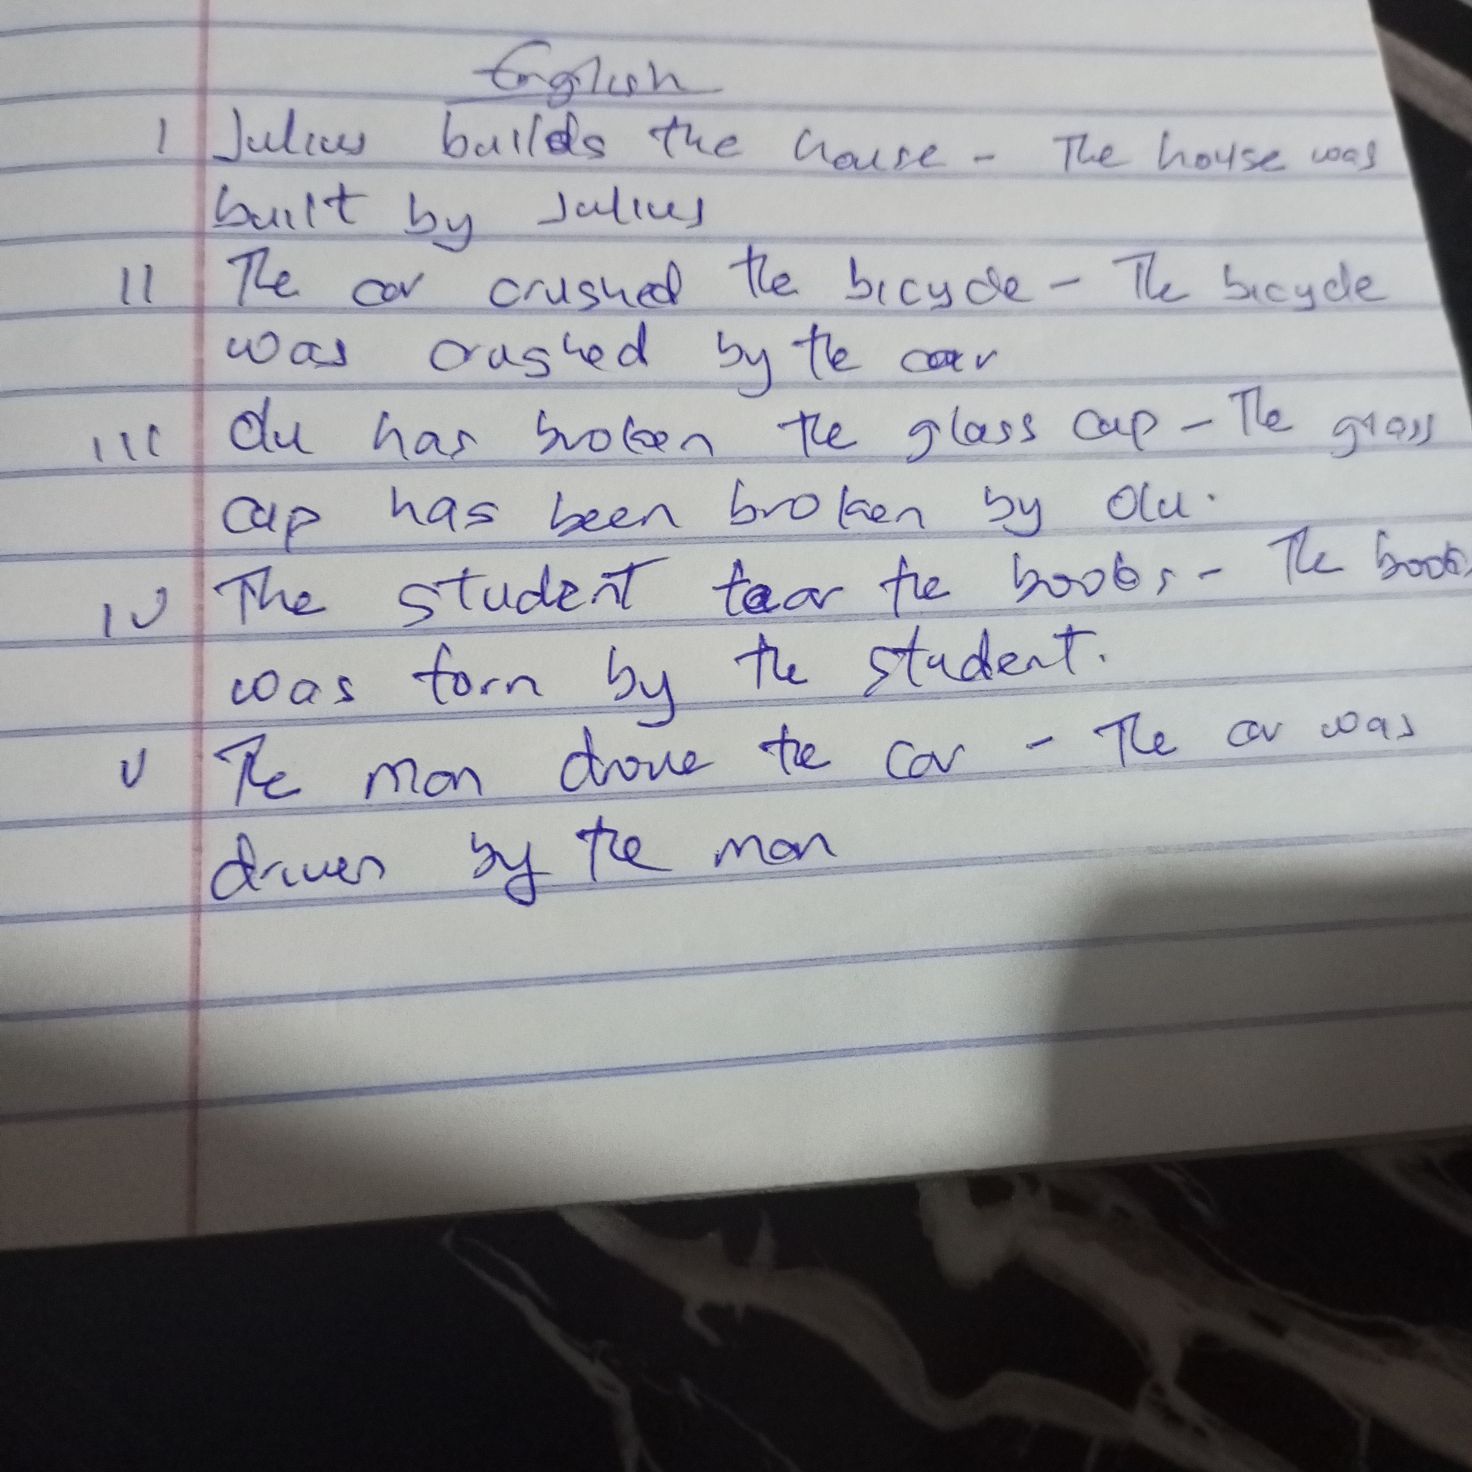 English
I Julius builds the house - The house was
built by Julius
II The car crushed the bicycle - The bicycle
was crushed by the car
III Olu has broken the glass cup - The glass
cup has been broken by Olu.
IV The student tear the books - The books
was torn by the student.
V The man drove the car - The car was
driven by the man